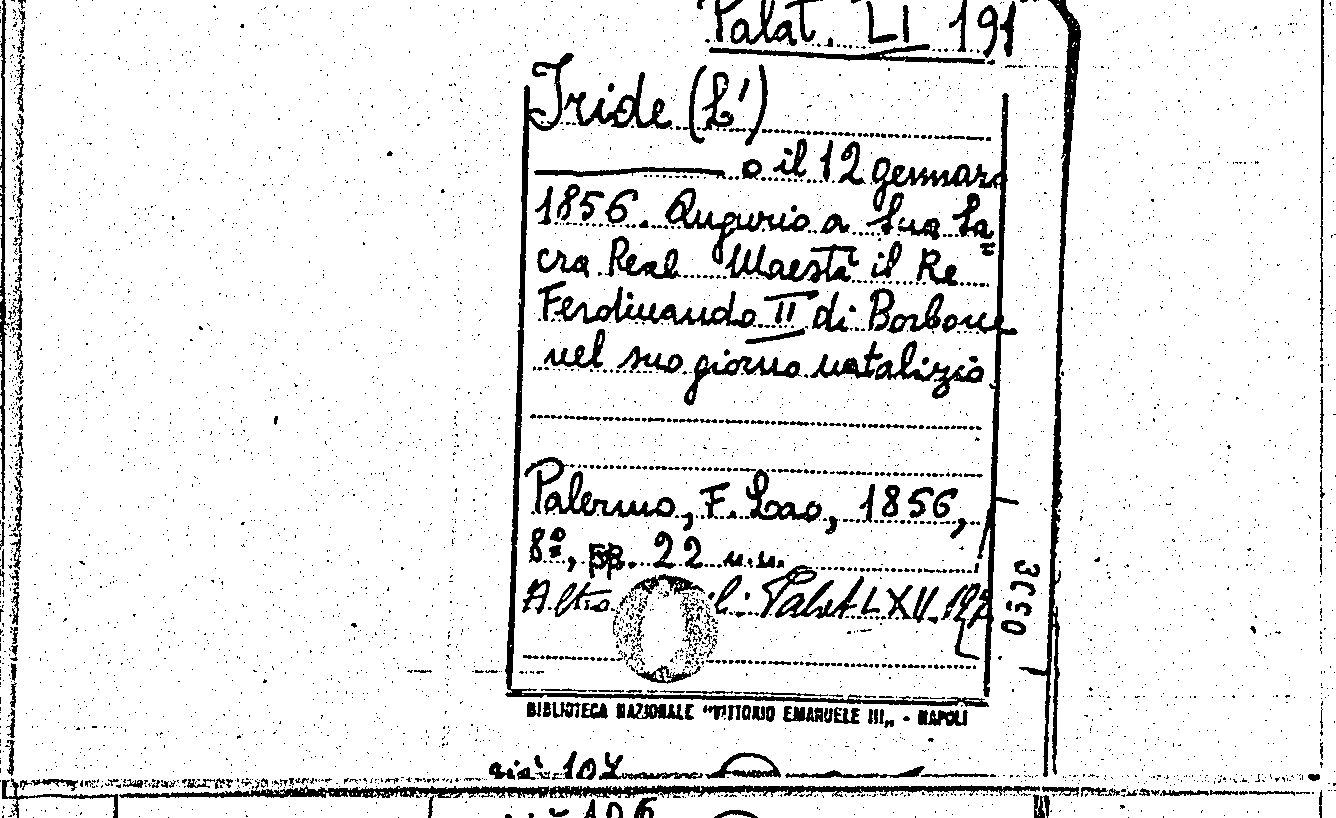 Palat. LI 191
Iride (L')
o il 12 gennaro
1856. Augurio a Sua Sa=
cra Real Maestà il Re
Ferdinando II di Borbone
nel suo giorno natalizio
Palermo, F. Lao, 1856,
8º, pp. 22 n.n.
Palat. LXII.
BIBLIOTECA NAZIONALE "VITTORIO EMANUELE III„ - NAPOLI
già 107
106